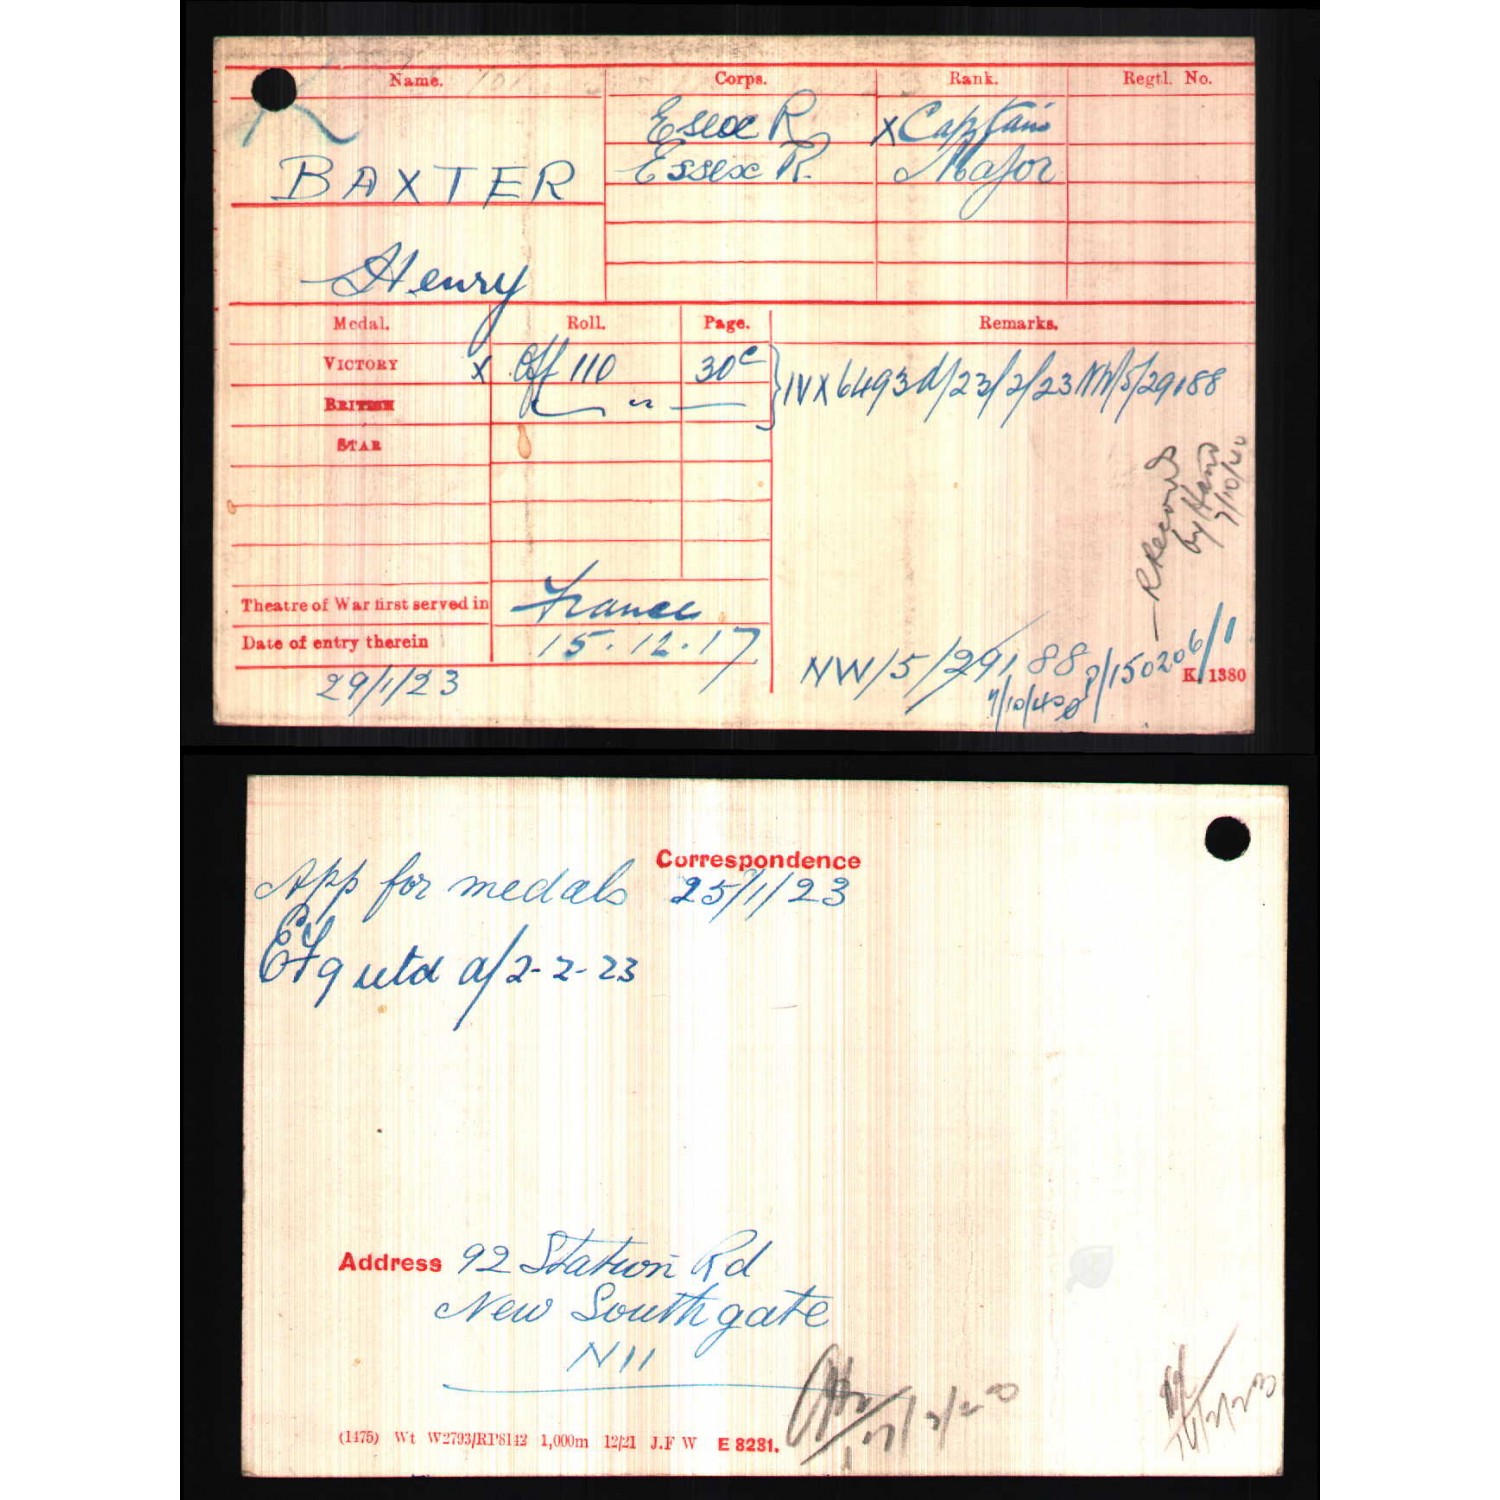 Name. Corps. Rank. Regtl. No.
Essex R. X Captain
BAXTER Essex R. Major
Henry
Medal. Roll. Page. Remarks.
VICTORY X Off 110 30c } IVX 6493 d/23/2/23 NW/5/29188
BRITISH — " —
STAR
RRecords
by Hand
7/10/40
Theatre of War first served in France
Date of entry therein 15.12.17
29/1/23 NW/5/29188 P/150206/1 K. 1380
7/10/40
Correspondence
App for medals 25/1/23
EF9 utd d/2-2-23
Address 92 Station Rd
New Southgate
N11
(1475) Wt W2793/RP8142 1,000m 12/21 J.F W E 8281.